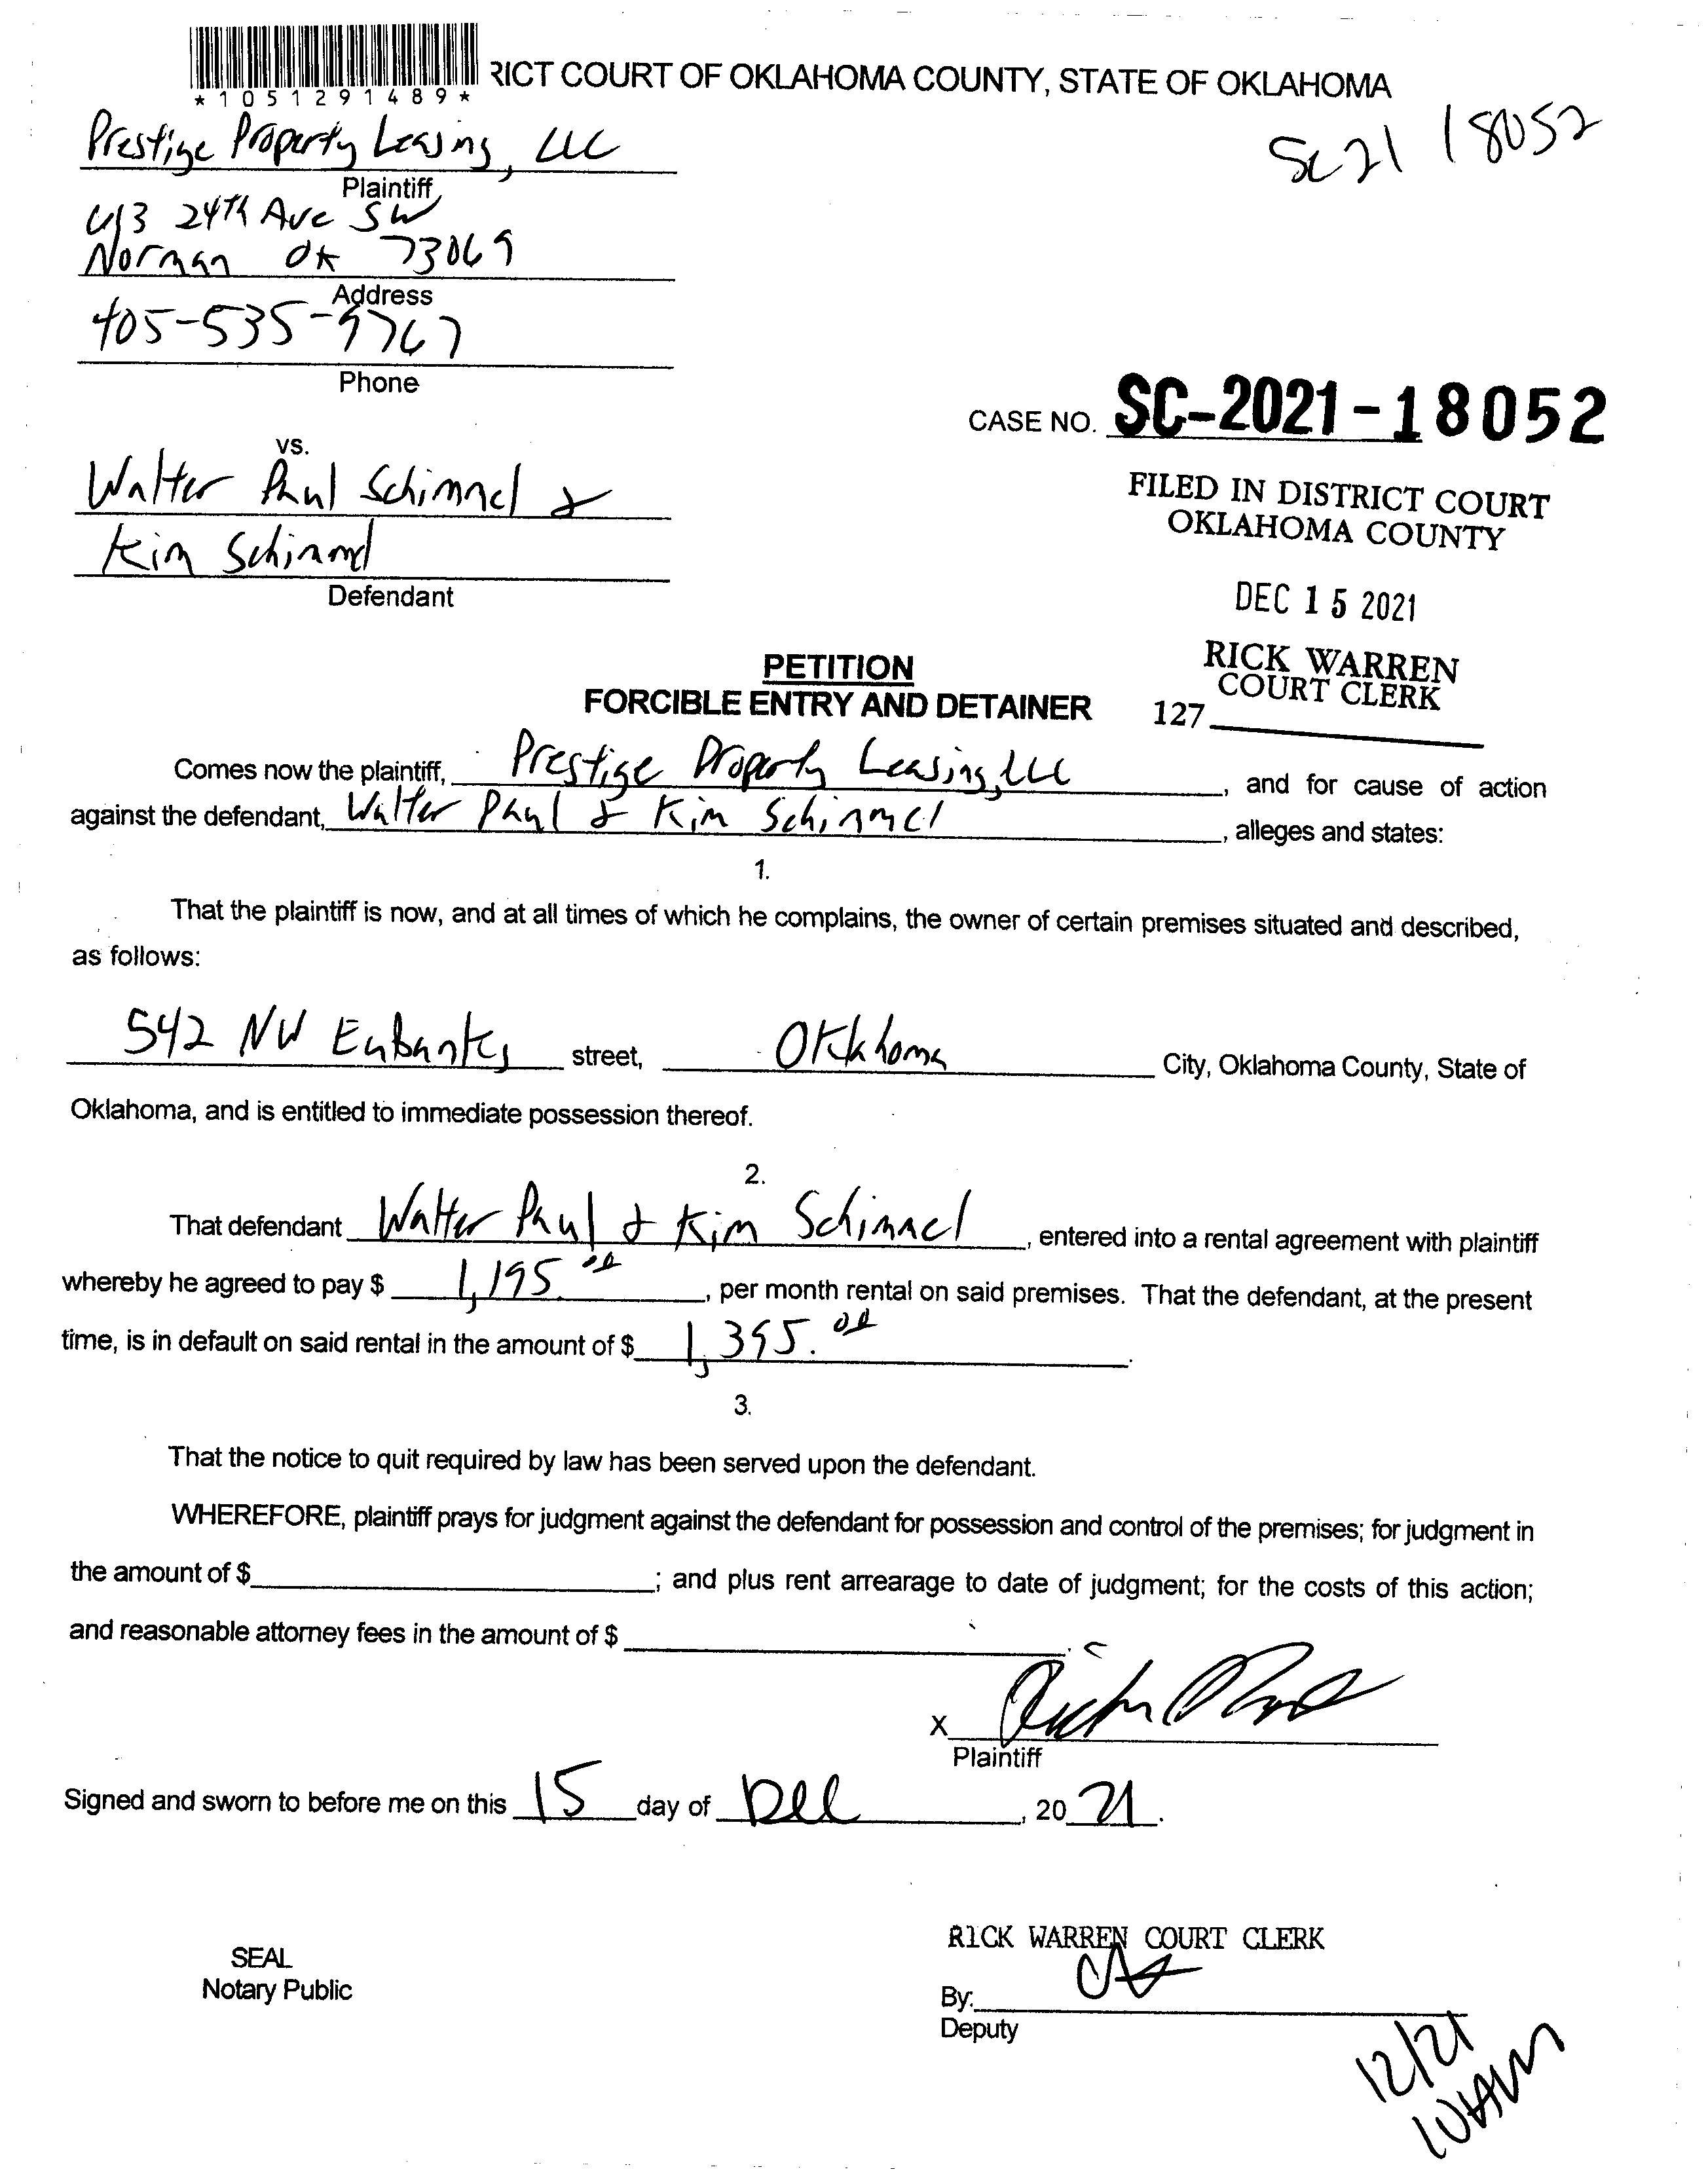 *1051291489*
RICT COURT OF OKLAHOMA COUNTY, STATE OF OKLAHOMA
SC 21 18052
Prestige Property Leasing, LLC
Plaintiff
413 24th Ave SW
Norman OK 73069
Address
405-535-9767
Phone
CASE NO. SC-2021-18052
vs.
Walter Paul Schimmel &
Kim Schimmel
Defendant
FILED IN DISTRICT COURT
OKLAHOMA COUNTY
DEC 15 2021
RICK WARREN
COURT CLERK
127
PETITION
FORCIBLE ENTRY AND DETAINER
Comes now the plaintiff, Prestige Property Leasing, LLC, and for cause of action
against the defendant, Walter Paul & Kim Schimmel, alleges and states:
1.
That the plaintiff is now, and at all times of which he complains, the owner of certain premises situated and described,
as follows:
542 NW Eubanks street, Oklahoma City, Oklahoma County, State of
Oklahoma, and is entitled to immediate possession thereof.
2.
That defendant Walter Paul & Kim Schimmel, entered into a rental agreement with plaintiff
whereby he agreed to pay $ 1,195.00, per month rental on said premises. That the defendant, at the present
time, is in default on said rental in the amount of $ 1,395.00.
3.
That the notice to quit required by law has been served upon the defendant.
WHEREFORE, plaintiff prays for judgment against the defendant for possession and control of the premises; for judgment in
the amount of $ ; and plus rent arrearage to date of judgment; for the costs of this action;
and reasonable attorney fees in the amount of $ .
X
Plaintiff
Signed and sworn to before me on this 15 day of Dec, 2021.
SEAL
Notary Public
RICK WARREN COURT CLERK
By:
Deputy
12/21
10AM